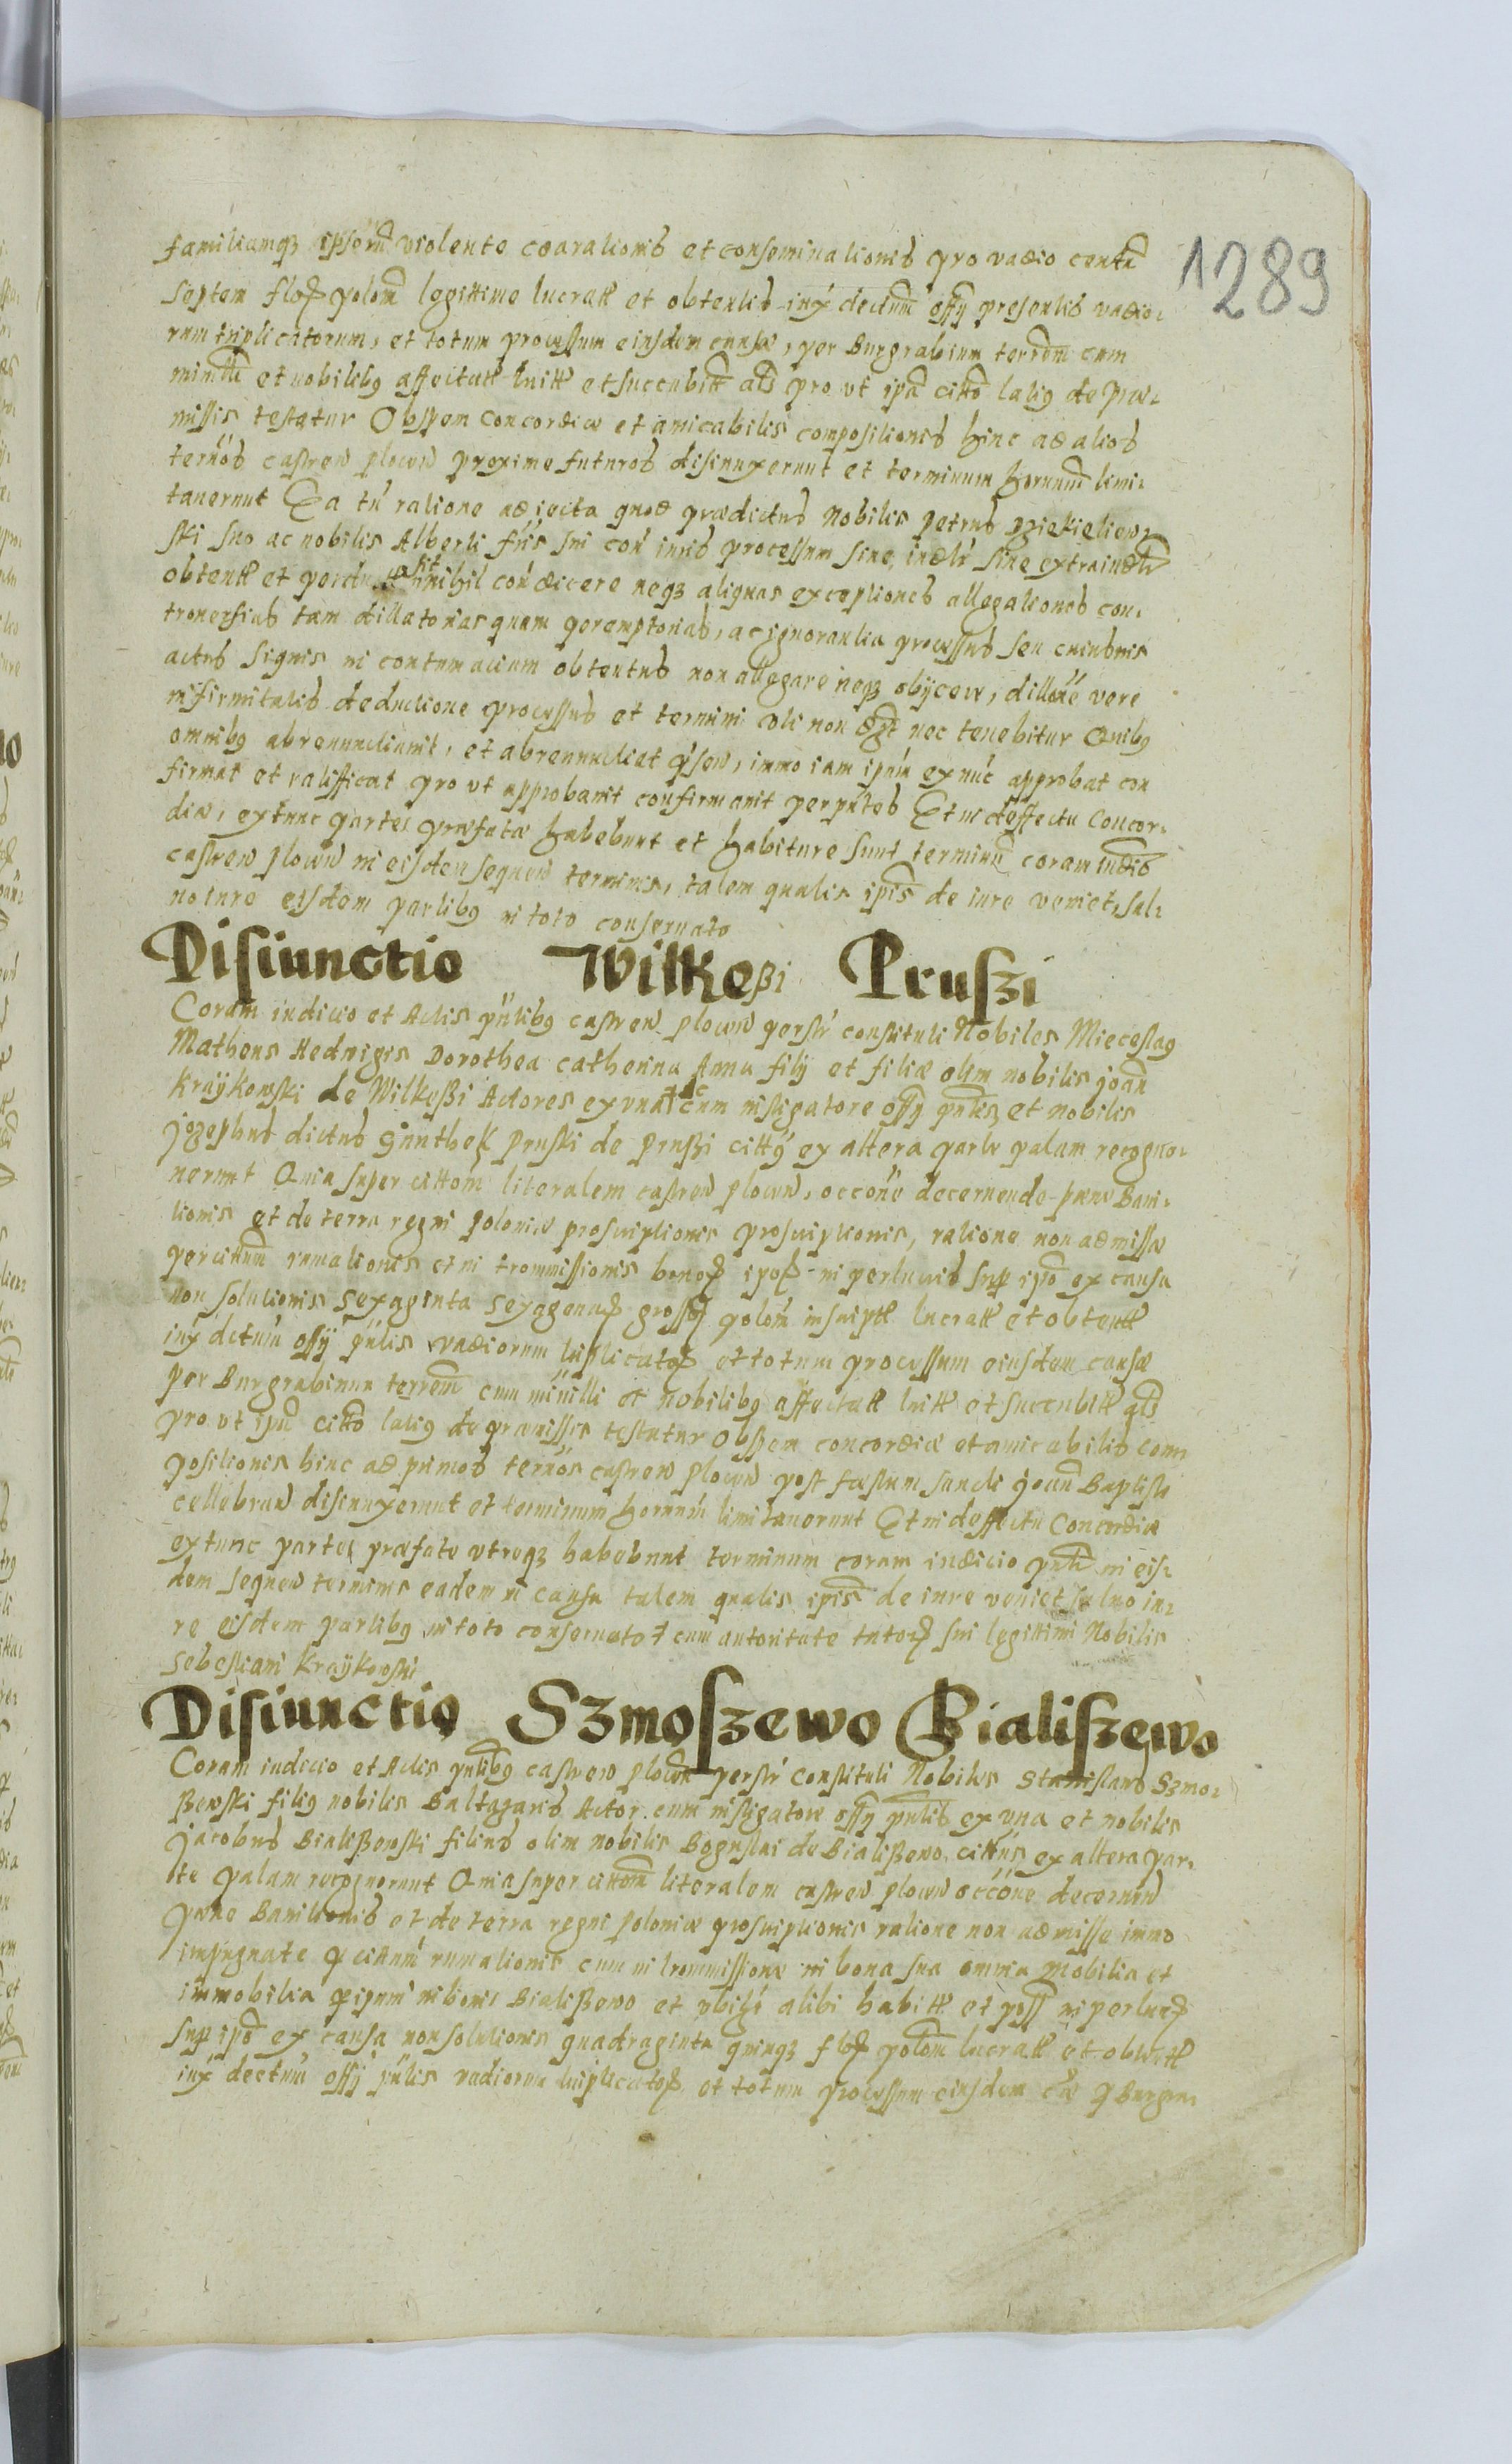 familiamqȝ ipsorū violente coarationis et conseminationis pro vadio centū
septem floꝝ polon̄ legittime lucratt et obtentis iux dectum offȳ presentis vadio-
rum triplicatorum, et totum processum eiusdem causæ, per Burgrabium terrēm cum
minrlī et nobilibȝ affectatt luitt et succubitt als̄ pro vt ipā cittō latiȝ de præ-
missis testatur Ob spem concordiæ et amicabilis compositionis hinc ad alios
ternōs castren plocen proxime futuros disiunxerunt et terminum horunm̄ limi-
tauerunt Ea tn̄ ratione adiecta quod prædictus Nobilis Petrus
ski suo ac nobilis Alberti fr̄is sui con̄ processum siue iudlr̄ siue extraiudlr̄
obtentt et nihil con̄dicere neqȝ aliquas exceptiones allegationes con-
trouersias tam dillatorias quam peremptorias, ac ignorantia processus seu cuiusuis
actus siquis in contumaciam obtentus non allegare neqȝ obijcere, dillōne vere
infirmitatis deductione processus et termini vti non dbt nec tenebitur Quibȝ
omnibȝ abrenunciauit, et abrenunciat p̄sen, immo iam ipūm ex nūc approbat con
firmat et ratifficat pro vt approbauit confirmauit per pn̄tes Et in deffectu Concor-
diæ, extunc partes præfatæ habebunt et habiture sunt terminū coram iudicō
castren plocen in eisdem sequen terminis, talem qualis ipīs de iure veniet, sal-
no iure eisdem partibȝ in toto conseruato
Disiunctio Wilkeßi Pruszi
Coram iudicio et Actis pn̄tibȝ castren plocen persr̄ constituti Nobiles Mieceslaȝ
Matheus Hedwigis Dorothea Catherina Anna filij et filiæ olim nobilis Joan̄
Kraykowski de Wilkeßi Actores ex vna † cum instigatore offȳ pn̄tis et nobilis
Jozephus dictus Gunthek Pruski de Prußi cittȝ ex altera parte palam recogno-
uerunt Quia super cittōm literalem castren plocen, occōne decernende pænæ Bani-
tionis et de terra regni Poloniæ proscriptionis proscriptionis, ratione non admissæ
per cittūm rumationis et in trommissionis bonoꝝ ipoꝝ in perlucris sup̄ ipō ex causa
non solutionis sexaginta sexagenaꝝ grossoꝝ polon̄ inscript lucratt et obtentt
iux dctum̄ offȳ pn̄tis vadiorum triplicatoꝝ et totum processum eiusdem causæ
per Burgrabium terrēm cum minrlī et nobilibȝ affectatt luitt et succubitt als̄
pro vt ipū cittō latiȝ de præmissis testatur Ob spem concordiæ et amicabilis com
positionis hinc ad primos ternōs castren plocen post fæstum sancti Joan̄ Baptistæ
cellebran disiunxerunt et terminum horunm̄ limitauerunt Et in deffectu Concordiæ
extunc partes præfate vtreqȝ habebunt terminum coram iudicio pn̄ti in eis-
dem sequen terminis eadem in causa talem qualis ipīs de iure veniet saluo iu-
re eisdem partibȝ in toto conseruato † cum autoritate tutoꝝ sui legittimi Nobilis
Sebestiani Kraykowski
Disiunctio Szmoszewo Bialiszewo
Coram iudicio et Actis pn̄tibȝ castren plocen persr̄ constituti Nobiles Stanislaus Szmo-
ßewski filiȝ nobilis Baltazaris Actor cum instigatore offȳ pn̄tis ex vna et nobilis
Jacobus Bialißewski filius olim nobilis Boguslai de Bialißewo cittus ex altera par-
te palam recognorunt Quia super cittōm literalem castren plocen occōne decernen
pænæ Banitionis et de terra regni poloniæ proscriptionis ratione non admisse immo
impugnate ꝑ cittum̄ rumationis cum in trommissione in bona sua omnia mobilia et
immobilia ꝑ ipum̄ in bonis Bialißewo et vbiqȝ alibi habitt et poss̄ in perlucris
sup̄ ipō ex causa non solutionis quadraginta quinqȝ floꝝ polon̄ lucratt et obtentt
iux dectum̄ offȳ pn̄tis vadiorum triplicatoꝝ et totum processum eiusdem cæ ꝑ Burgra-
1289